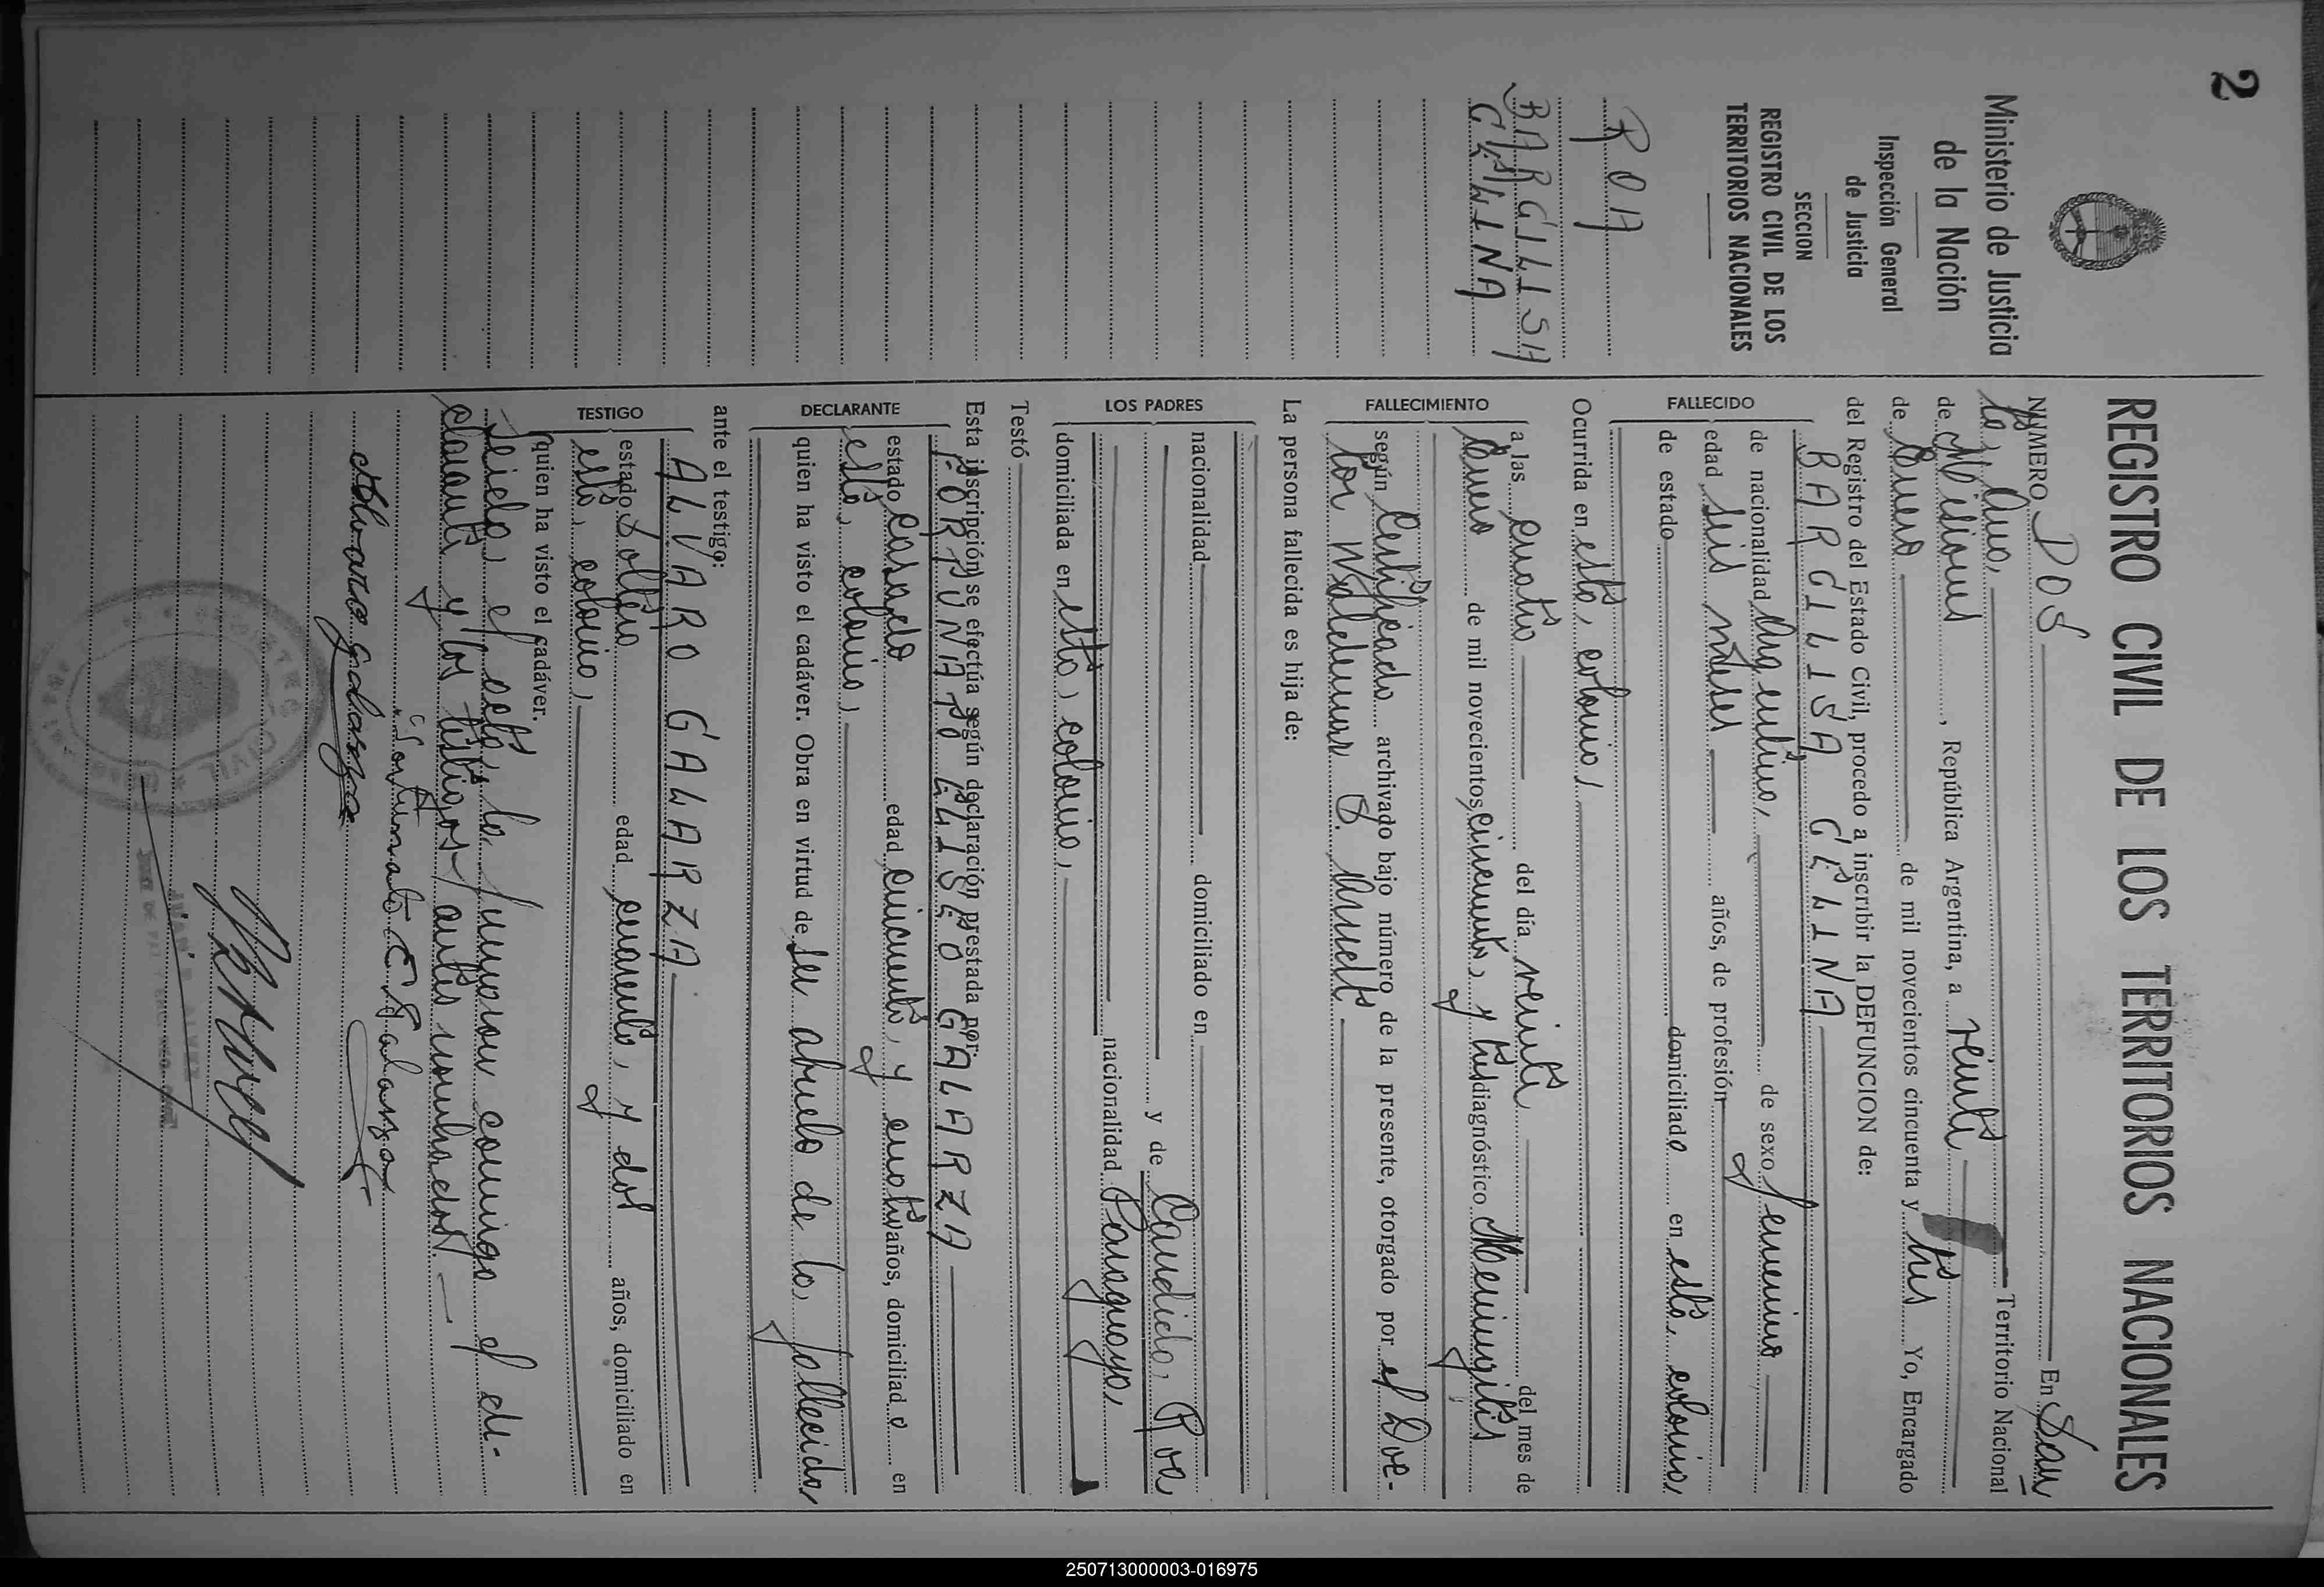 2
Ministerio de Justicia
de la Nación
Inspección General
de Justicia
SECCION
REGISTRO CIVIL DE LOS
TERRITORIOS NACIONALES
ROA
BARGILISA
CELINA
REGISTRO CIVIL DE LOS TERRITORIOS NACIONALES
NUMERO DOS En San
Territorio Nacional
de Misiones, República Argentina, a veinte
de Enero de mil novecientos cincuenta y tres Yo, Encargado
del Registro del Estado Civil, procedo a inscribir la DEFUNCION de:
FALLECIDO
BARGILISA CELINA
de nacionalidad Argentina, de sexo femenino
edad seis meses años, de profesión
de estado domiciliado en esta, colonia
Ocurrida en esta, colonia,
FALLECIMIENTO
a las cuatro del día veinte del mes de
Enero de mil novecientos cincuenta, y tres diagnóstico Meningitis
según Certificado archivado bajo número de la presente, otorgado por el Doc-
tor Waldemar
La persona fallecida es hija de:
LOS PADRES
nacionalidad domiciliado en
y de Candida, Roa
nacionalidad Paraguaya,
domiciliada en esta, colonia,
Testó
Esta inscripción se efectúa según declaración prestada por
DECLARANTE
FORTUNATO ELISEO GALARZA
estado Casado edad cincuenta, y cuatro años, domiciliado en
esta, colonia,
quien ha visto el cadáver. Obra en virtud de ser abuelo de la, fallecida,
ante el testigo:
TESTIGO
ALVARO GALARZA
estado Soltero edad cuarenta, y dos años, domiciliado en
esta, colonia,
quien ha visto el cadáver.
Leida, el acta, la firmaron conmigo el de-
clarante y los testigos antes nombrados
Fortunato E Galarza
Alvaro Galarza
250713000003-016975